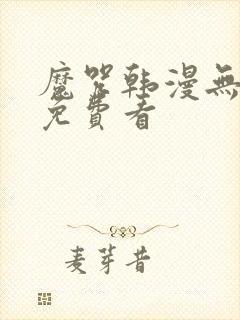 魔咒韩漫無
免費看
麦芽昔